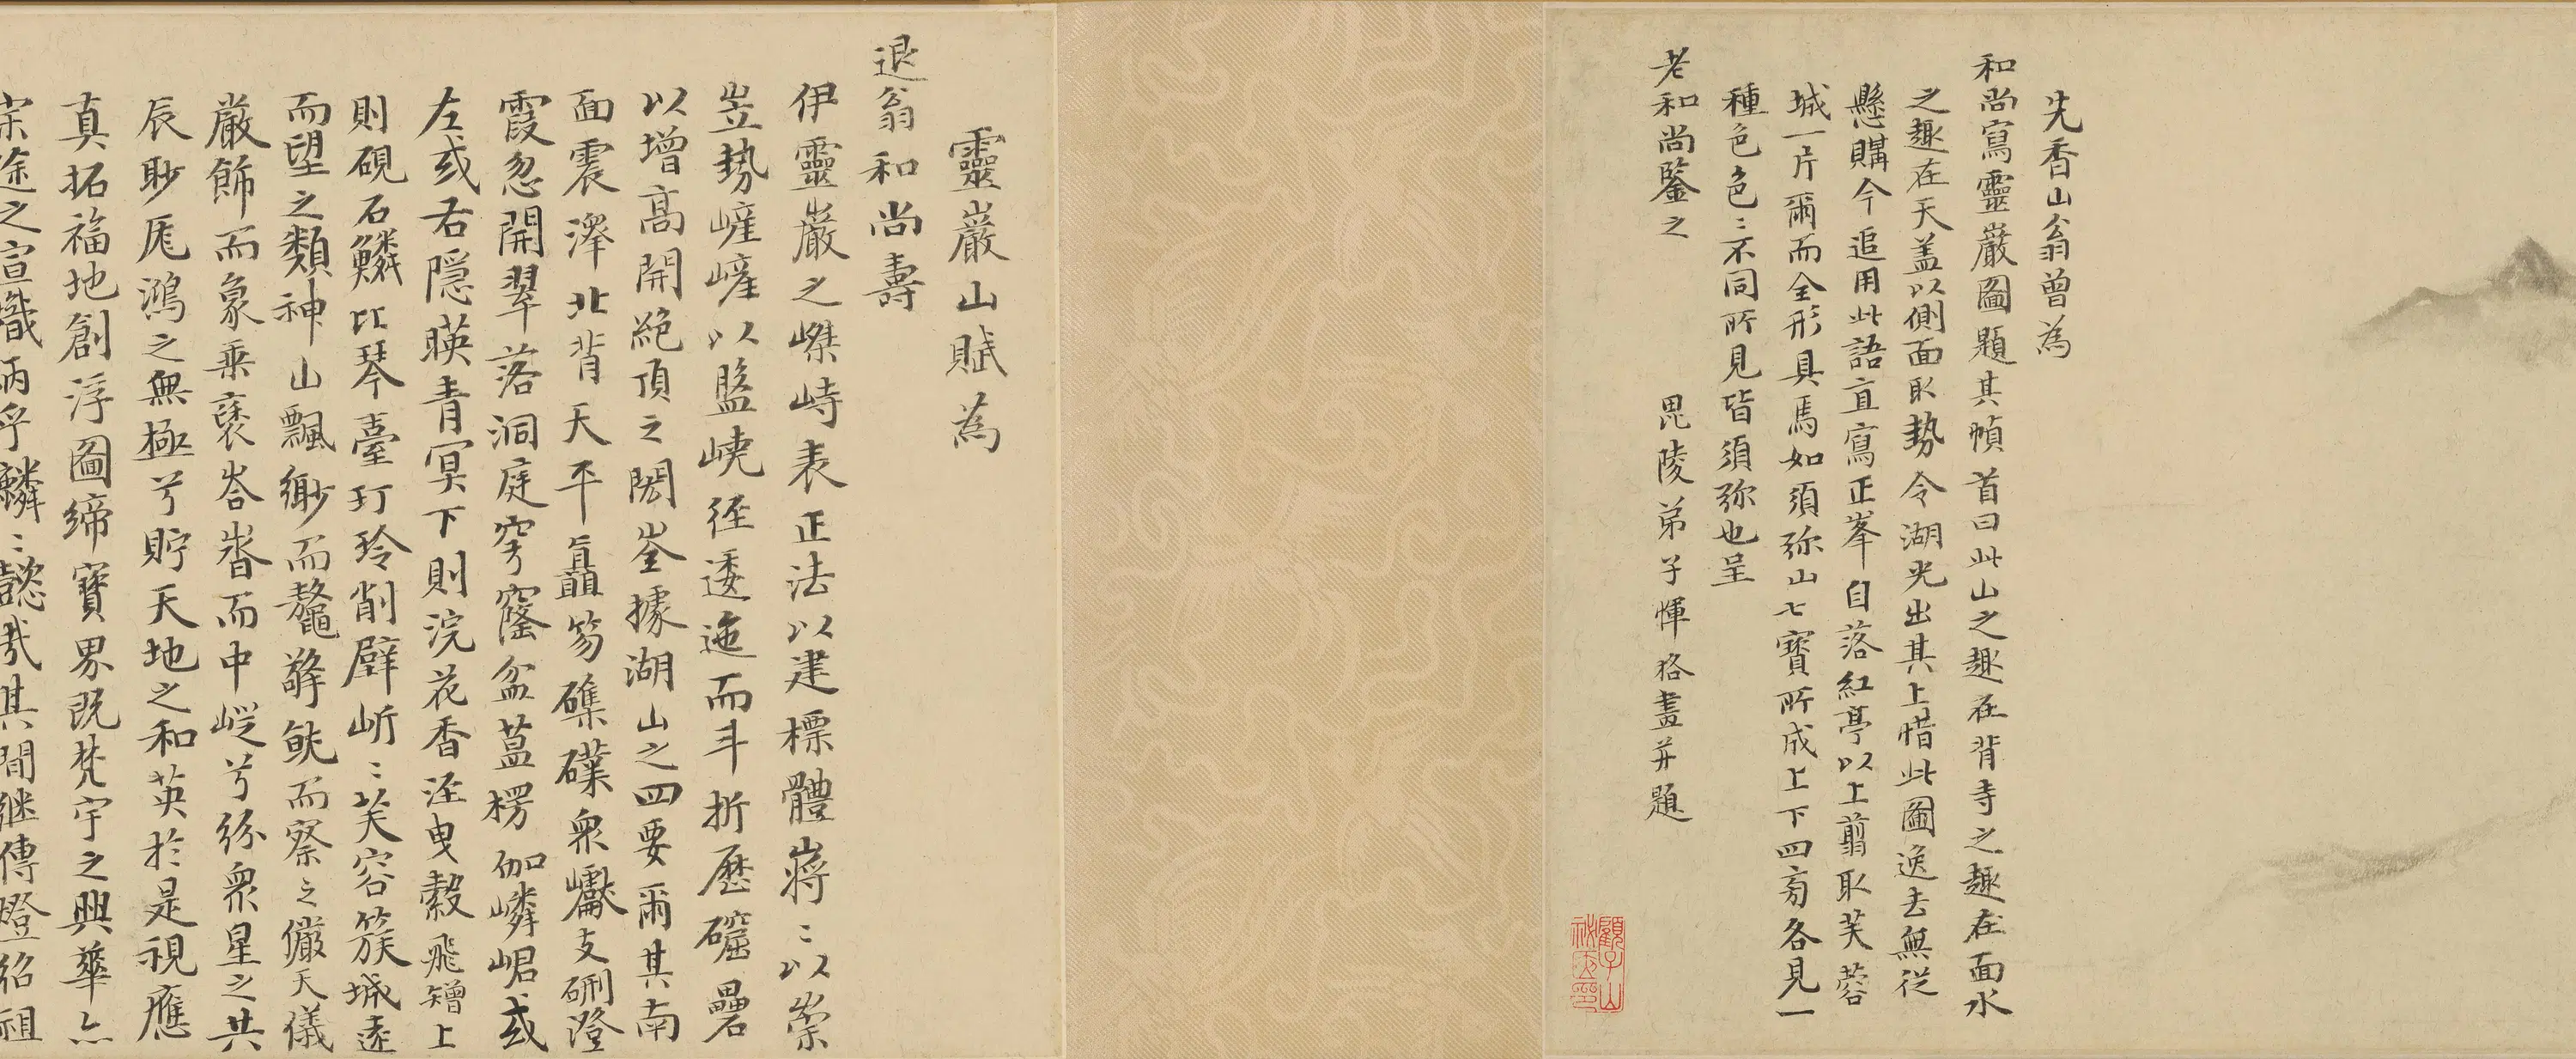 先香山翁曾為
和尚寫靈巖圖題其幀首曰此山之趣在背寺之趣在面水
之趣在天蓋以側面取勢令湖光出其上惜此圖逸去無從
懸購今追用此語直寫正峯自落紅亭以上翦取芙蓉
城一片爾而全形具焉如須弥山七寶所成上下四旁各見一
種色色〻不同所見皆須弥也呈
老和尚鑒之 毘陵弟子惲格畫并題
顧子山秘篋印
靈巖山賦為
退翁和尚壽
伊靈巖之嵥峙表正法以建標體嶈〻以崇
岦勢嵼嵼以盤嶢徑逶迤而斗折歷礭礨
以增高開絕頂之閎崟據湖山之四要爾其南
面震澤北背天平矗笏磼礏眾巘支硎澄
霞忽開翠落洞庭穹窿盆葢楞伽嶙峮或
左或右隱暎青冥下則浣花香涇曳縠飛矰上
則硯石鱗比琴臺玎玲削壁岓〻芙容簇城遠
而望之類神山飄緲而鼇擎皝而察之儼天儀
嚴飾而象乘裦峉㟯而中嵷兮紛眾星之共
辰眇厖鴻之無極兮貯天地之和英於是視應
真拓福地創浮圖締寶界既梵宇之興華亦
宗途之宣幟炳乎麟〻懿哉其間繼傳燈紹祖